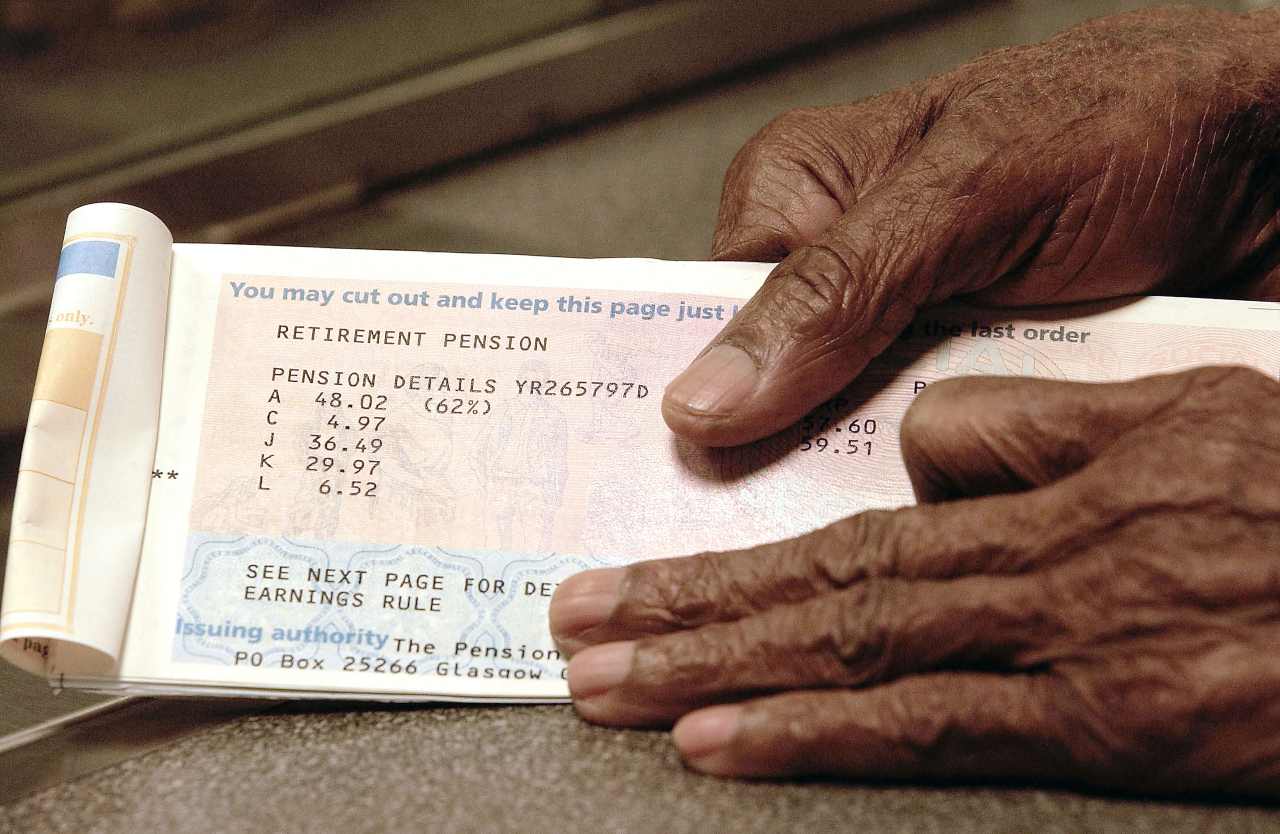 only.
You may cut out and keep this page just the last order
RETIREMENT PENSION
PENSION DETAILS YR265797D
A 48.02 (62%)
C 4.97
J 36.49
K 29.97
L 6.52
57.60
59.51
**
SEE NEXT PAGE FOR DE
EARNINGS RULE
Issuing authority The Pension
PO Box 25266 Glasgow
pag